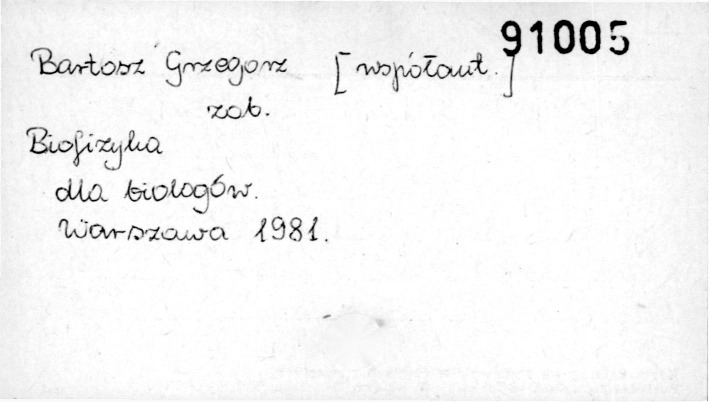 91005
Bartosz Grzegorz [współaut.]
zob.
Biofizyka
dla biologów.
Warszawa 1981.